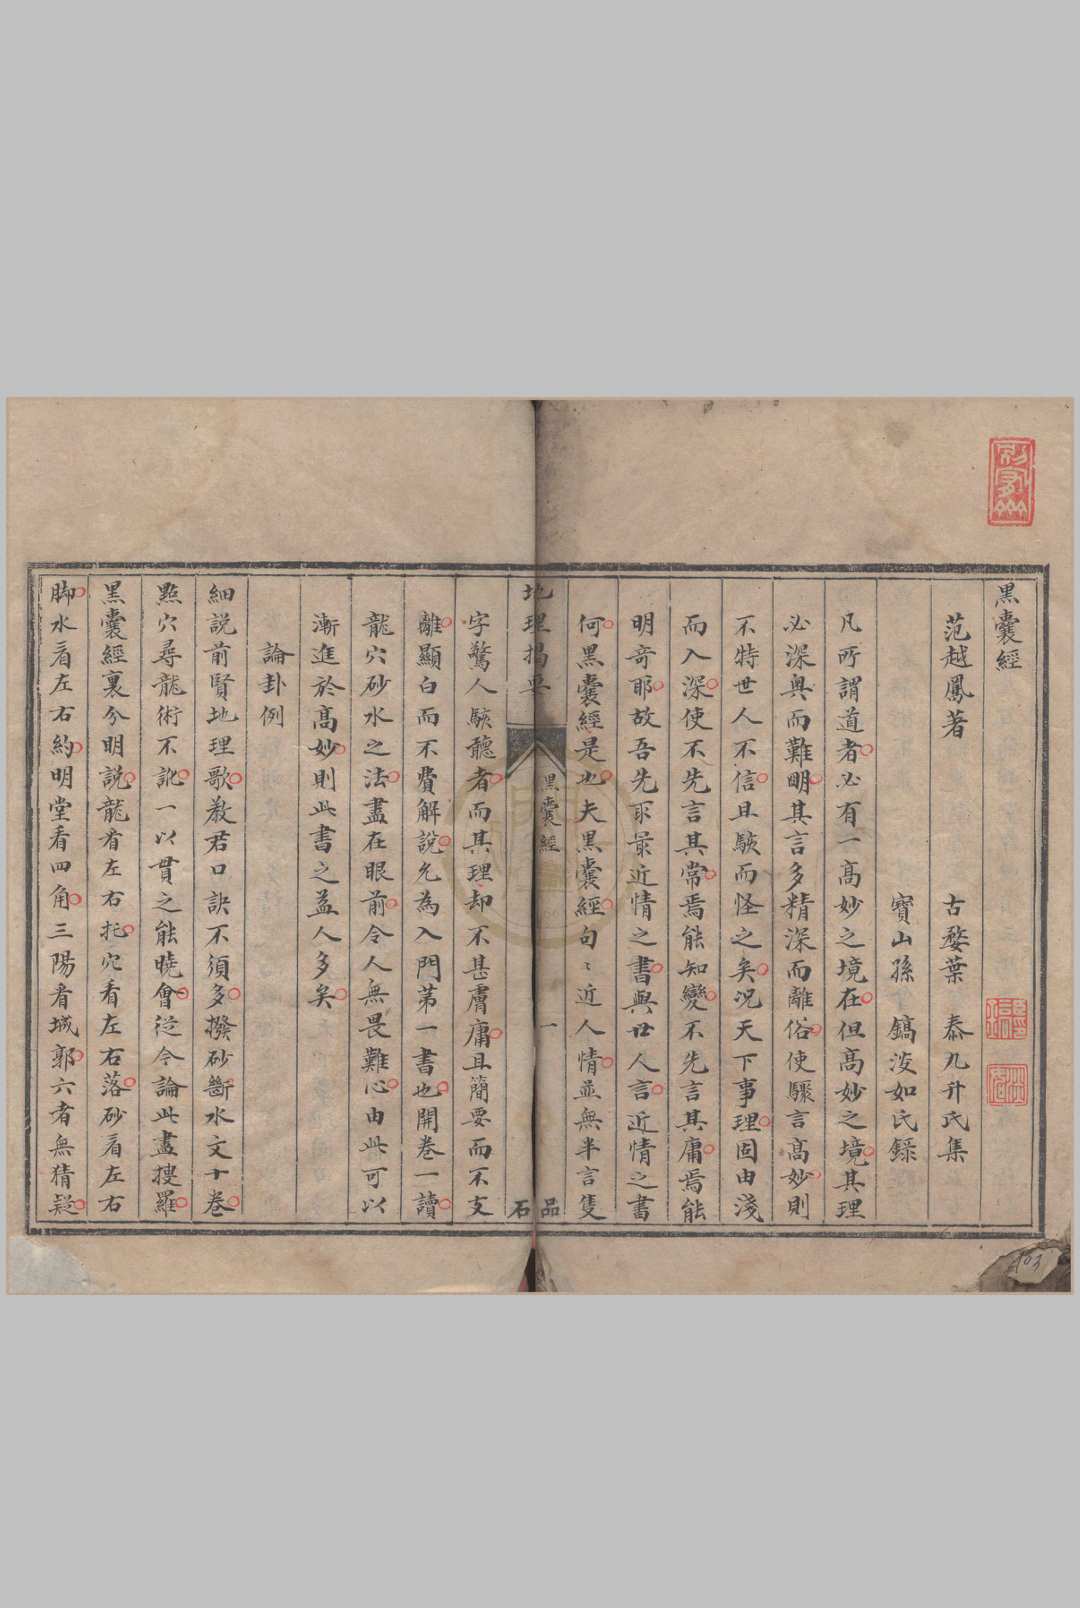 黑囊經
范越鳳著
古婺葉　泰九升氏集
寶山孫　鎬浚如氏錄
凡所謂道者必有一高妙之境在但高妙之境其理
必深奥而難明其言多精深而離俗使驟言高妙則
不特世人不信且駭而怪之矣况天下事理固由淺
而入深使不先言其常焉能知變不先言其庸焉能
明奇耶故吾先取最近情之書與世人言近情之書
何黑囊經是也夫黑囊經句々近人情並無半言隻
黑囊經
一
品
地理揭要
石
字驚人駭聽者而其理却不甚膚庸且簡要而不支
離顯白而不費解說允為入門苐一書也開卷一讀
龍穴砂水之法盡在眼前令人無畏難心由此可以
漸進於高妙則此書之益人多矣
論卦例
細説前賢地理歌教君口訣不須多撥砂斷水文十卷
點穴尋龍術不訛一以貫之能曉會從今論此盡搜羅
黑囊經裏分明説龍看左右托穴看左右落砂看左右
脚水看左右約明堂看四角三陽看城郭六者無猜疑